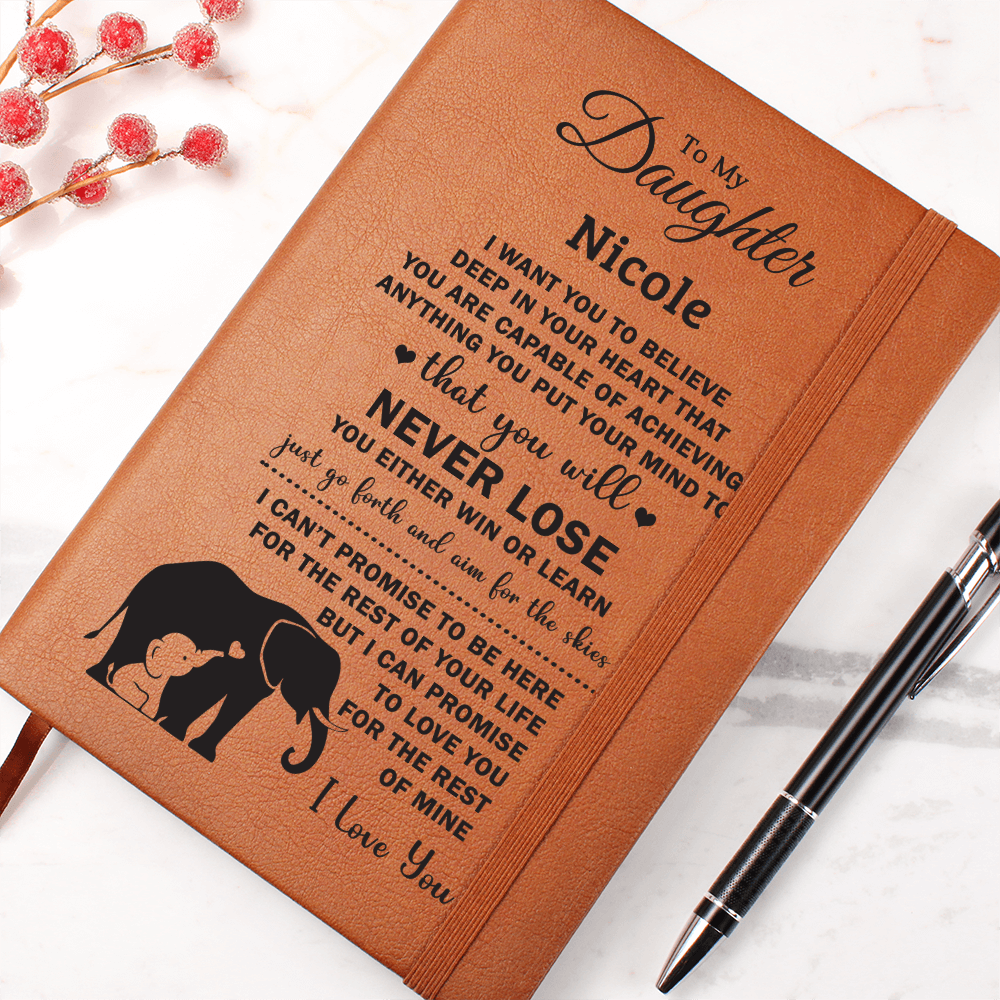 To My
Daughter
Nicole
I WANT YOU TO BELIEVE
DEEP IN YOUR HEART THAT
YOU ARE CAPABLE OF ACHIEVING
ANYTHING YOU PUT YOUR MIND TO
that you will
NEVER LOSE
YOU EITHER WIN OR LEARN
just go forth and aim for the skies
I CAN'T PROMISE TO BE HERE
FOR THE REST OF YOUR LIFE
BUT I CAN PROMISE
TO LOVE YOU
FOR THE REST
OF MINE
I Love You